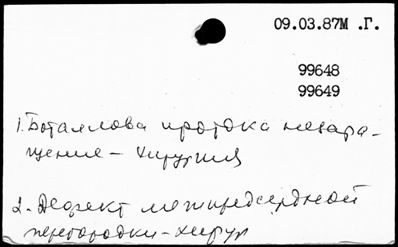 09.03.87М .Г.
99648
99649
1. Боталлова протока незара-
щение – хирургия
2. Дефект межпредсердной
перегородки – хирур